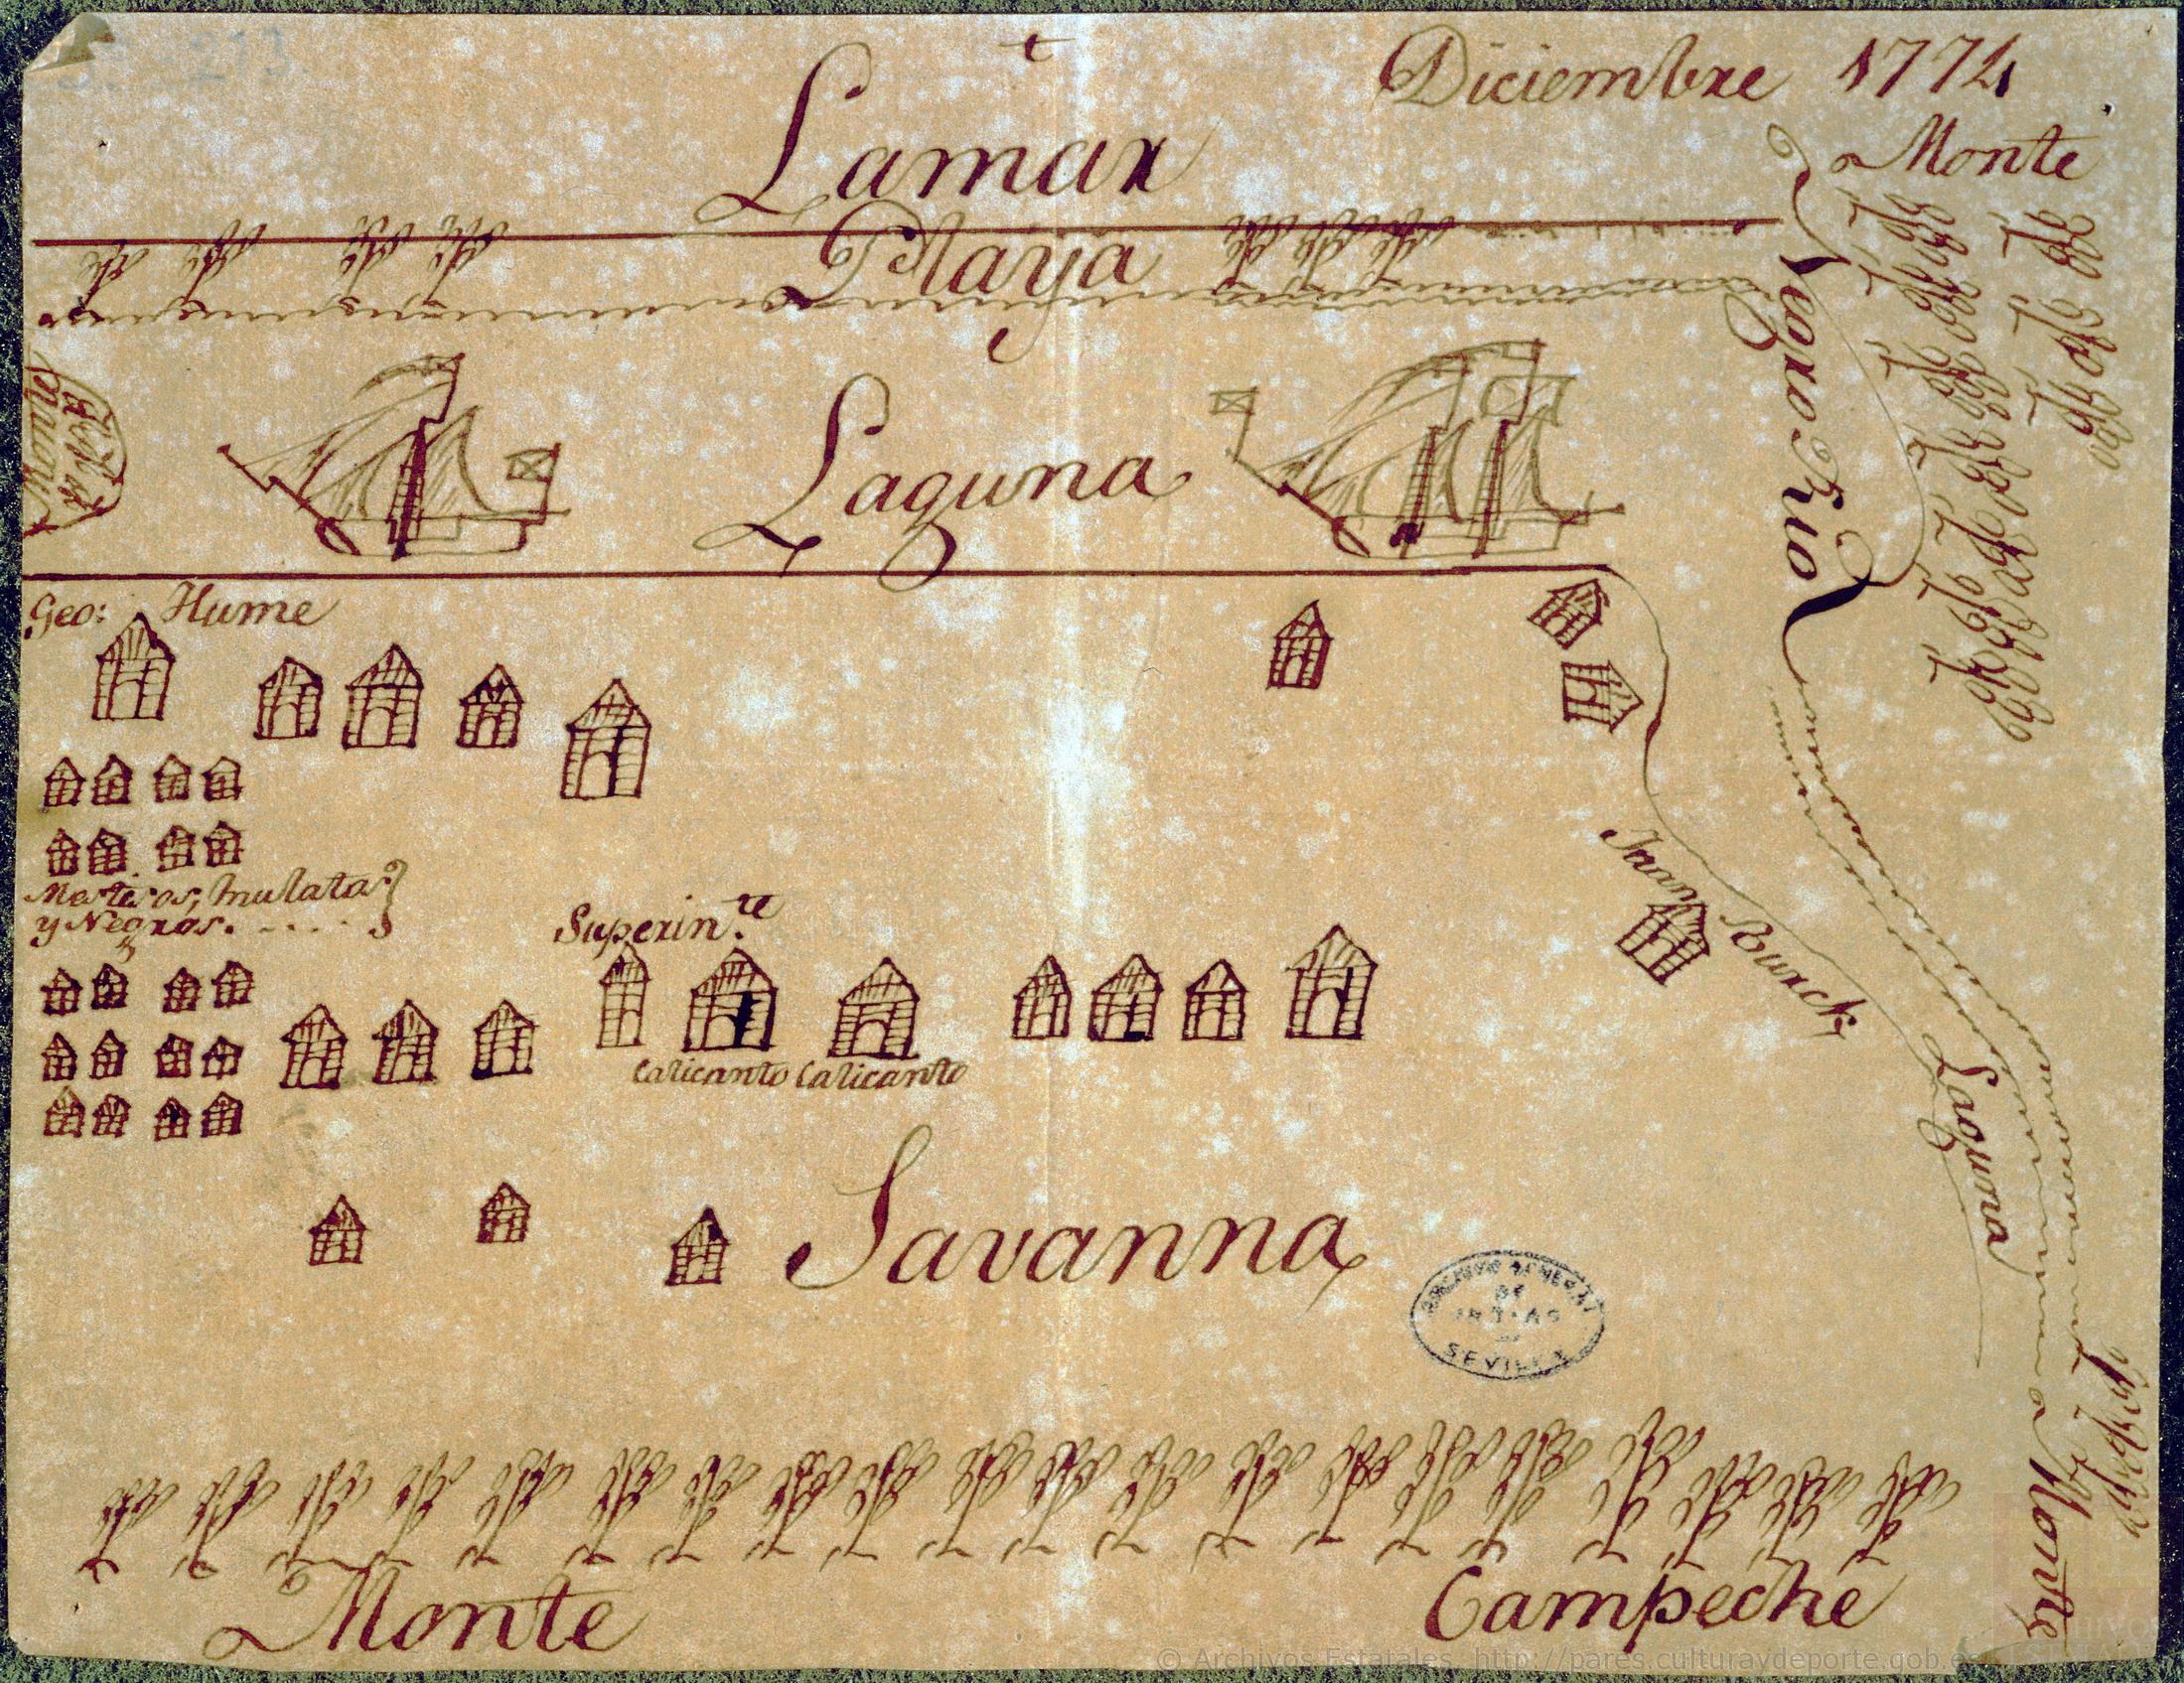 Diciembre 1774
Lamar
Monte
Playa
Negro Rio
Laguna
Geo: Hume
Mestisos, mulatas
y Negros.
Superin.te
Calicanto Calicanto
Juan Burck
Laguna
Savanna
ARCHIVO GENERAL
DE
INDIAS
SEVILLA
Monte
Campeche
Monte
© Archivos Estatales, http://pares.culturaydeporte.gob.es